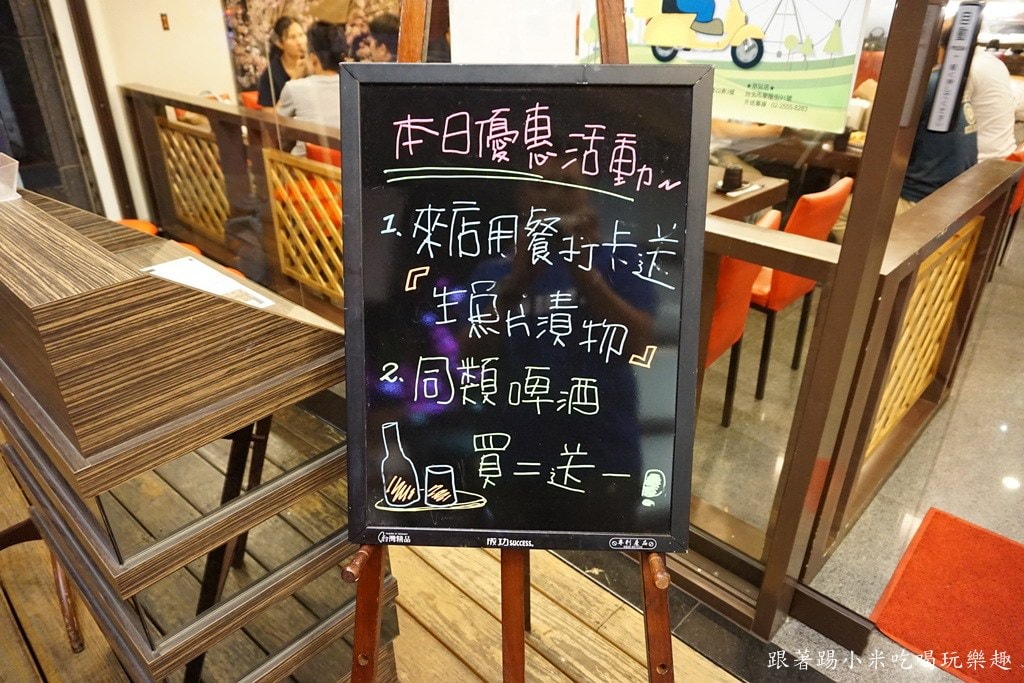 本日優惠活動~
1. 來店用餐打卡送
『生魚片漬物』
2. 同類啤酒
買二送一!
台灣精品
成功SUCCESS.
專利產品
跟著踢小米吃喝玩樂趣